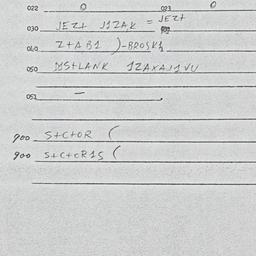 022 0 023 0
030 JEZt J1ZAK = JEZt
040 ZtAB1 )-BROSKY
050 MStLANK 1ZAXAJ1VU
052 –
900 StCtOR (
900 StCtOR1S (